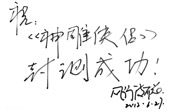 祝:
《神雕侠侣》
封测成功!
2012.6.27.